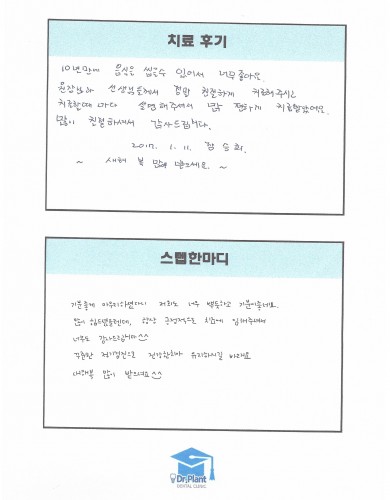 치료 후기
10년만에 음식을 씹을수 있어서 너무좋아요
원장님과 선생님들께서 정말 친절하게 치료해주시고
치료할때 마다 설명해주셔서 편하게 치료받았어요.
많이 친절하셔서 감사드립니다.
2017. 1. 11.
~ 새해 복 많이 받으세요. ~
스탭한마디
기분좋게 마무리하셨다니 저희도 너무 뿌듯하고 기분이좋네요.
많이 힘드셨을텐데, 항상 긍정적으로 치료에 임해주셔서
너무도 감사드립니다^^
꾸준한 정기검진으로 건강한치아 유지하시길 바래요
새해복 많이 받으세요^^
Dr.Plant
DENTAL CLINIC